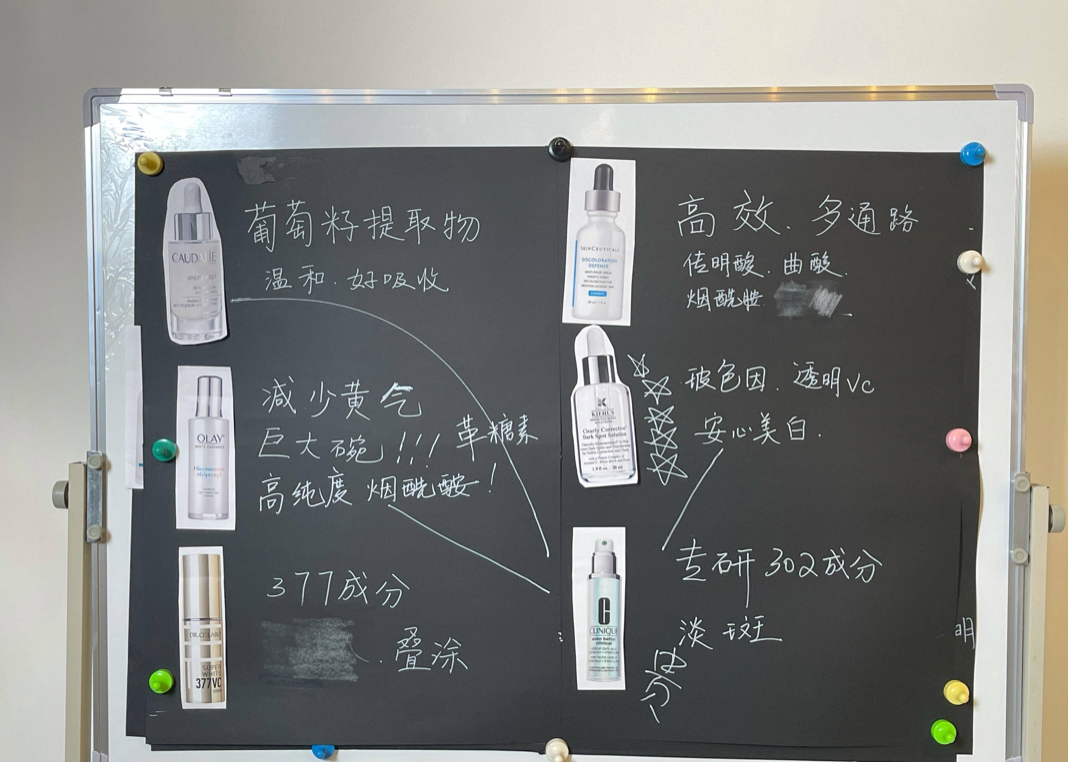 CAUDALIE
葡萄籽提取物
温和.好吸收
OLAY
减少黄气
巨大碗!!! 革糖素
高纯度 烟酰胺!
DR.CI:LABO
SUPER
WHITE
377VC
377成分
叠涂
SKINCEUTICALS
DISCOLORATION
DEFENSE
高效.多通路
传明酸.曲酸.
烟酰胺
KIEHL'S
Clearly Corrective
Dark Spot Solution
玻色因.透明VC
安心美白.
CLINIQUE
even better
clinical
专研302成分
淡斑
明